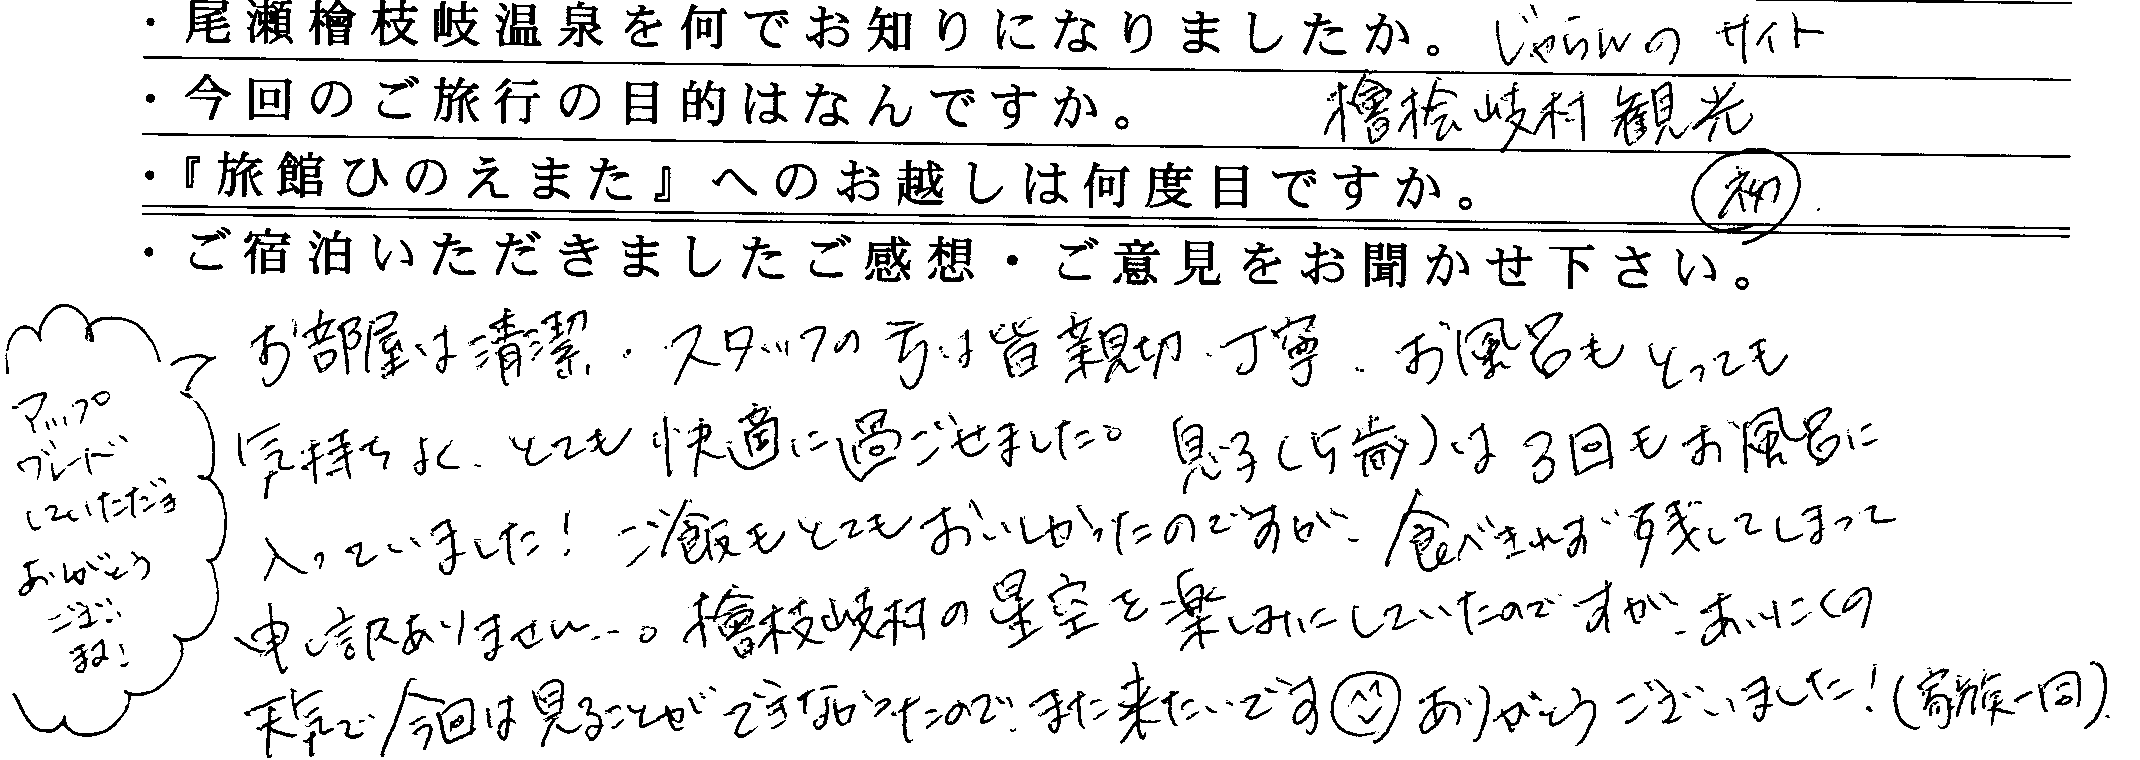 ・尾瀬檜枝岐温泉を何でお知りになりましたか。 じゃらんのサイト
・今回のご旅行の目的はなんですか。 檜桧岐村観光
・『旅館ひのえまた』へのお越しは何度目ですか。 初
・ご宿泊いただきましたご感想・ご意見をお聞かせ下さい。
お部屋は清潔、スタッフの方は皆親切、丁寧、お風呂もとっても
気持ちよく、とても快適に過ごせました。息子(5歳)は3回もお風呂に
入っていました!ご飯もとてもおいしかったのですが、食べきれず残してしまって
申し訳ありません…。檜枝岐村の星空を楽しみにしていたのですが、あいにくの
天気で今回は見ることができなかったので、また来たいです ありがとうございました!(家族一同)
アップ
グレード
していただき
ありがとう
ござい
ます!